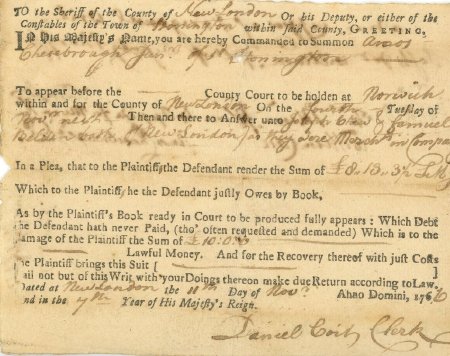 TO the Sheriff of the County of New London Or his Deputy, or either of the
Constables of the Town of Stonington within said County, GREETING,
IN his Majesty's Name, you are hereby Commanded to Summon Amos
Chesebrough Junr. of sd Stonington
To appear before the County Court to be holden at Norwich
within and for the County of New London On the fourth Tuesday of
Novr. next Then and there to Answer unto Joseph & Samuel
of New London Merchts in Company
In a Plea, that to the Plaintiff, the Defendant render the Sum of £8.15.3½
Which to the Plaintiff he the Defendant justly Owes by Book,
As by the Plaintiff's Book ready in Court to be produced fully appears: Which Debt
the Defendant hath never Paid, (tho' often requested and demanded) Which is to the
Damage of the Plaintiff the Sum of £10:0:0
Lawful Money. And for the Recovery thereof with just Costs
the Plaintiff brings this Suit [
Fail not but of this Writ with your Doings thereon make due Return according to Law.
Dated at New London the 11th Day of Novr. Anno Domini, 1766
And in the 7th Year of His Majesty's Reign.
Daniel Coit Clerk